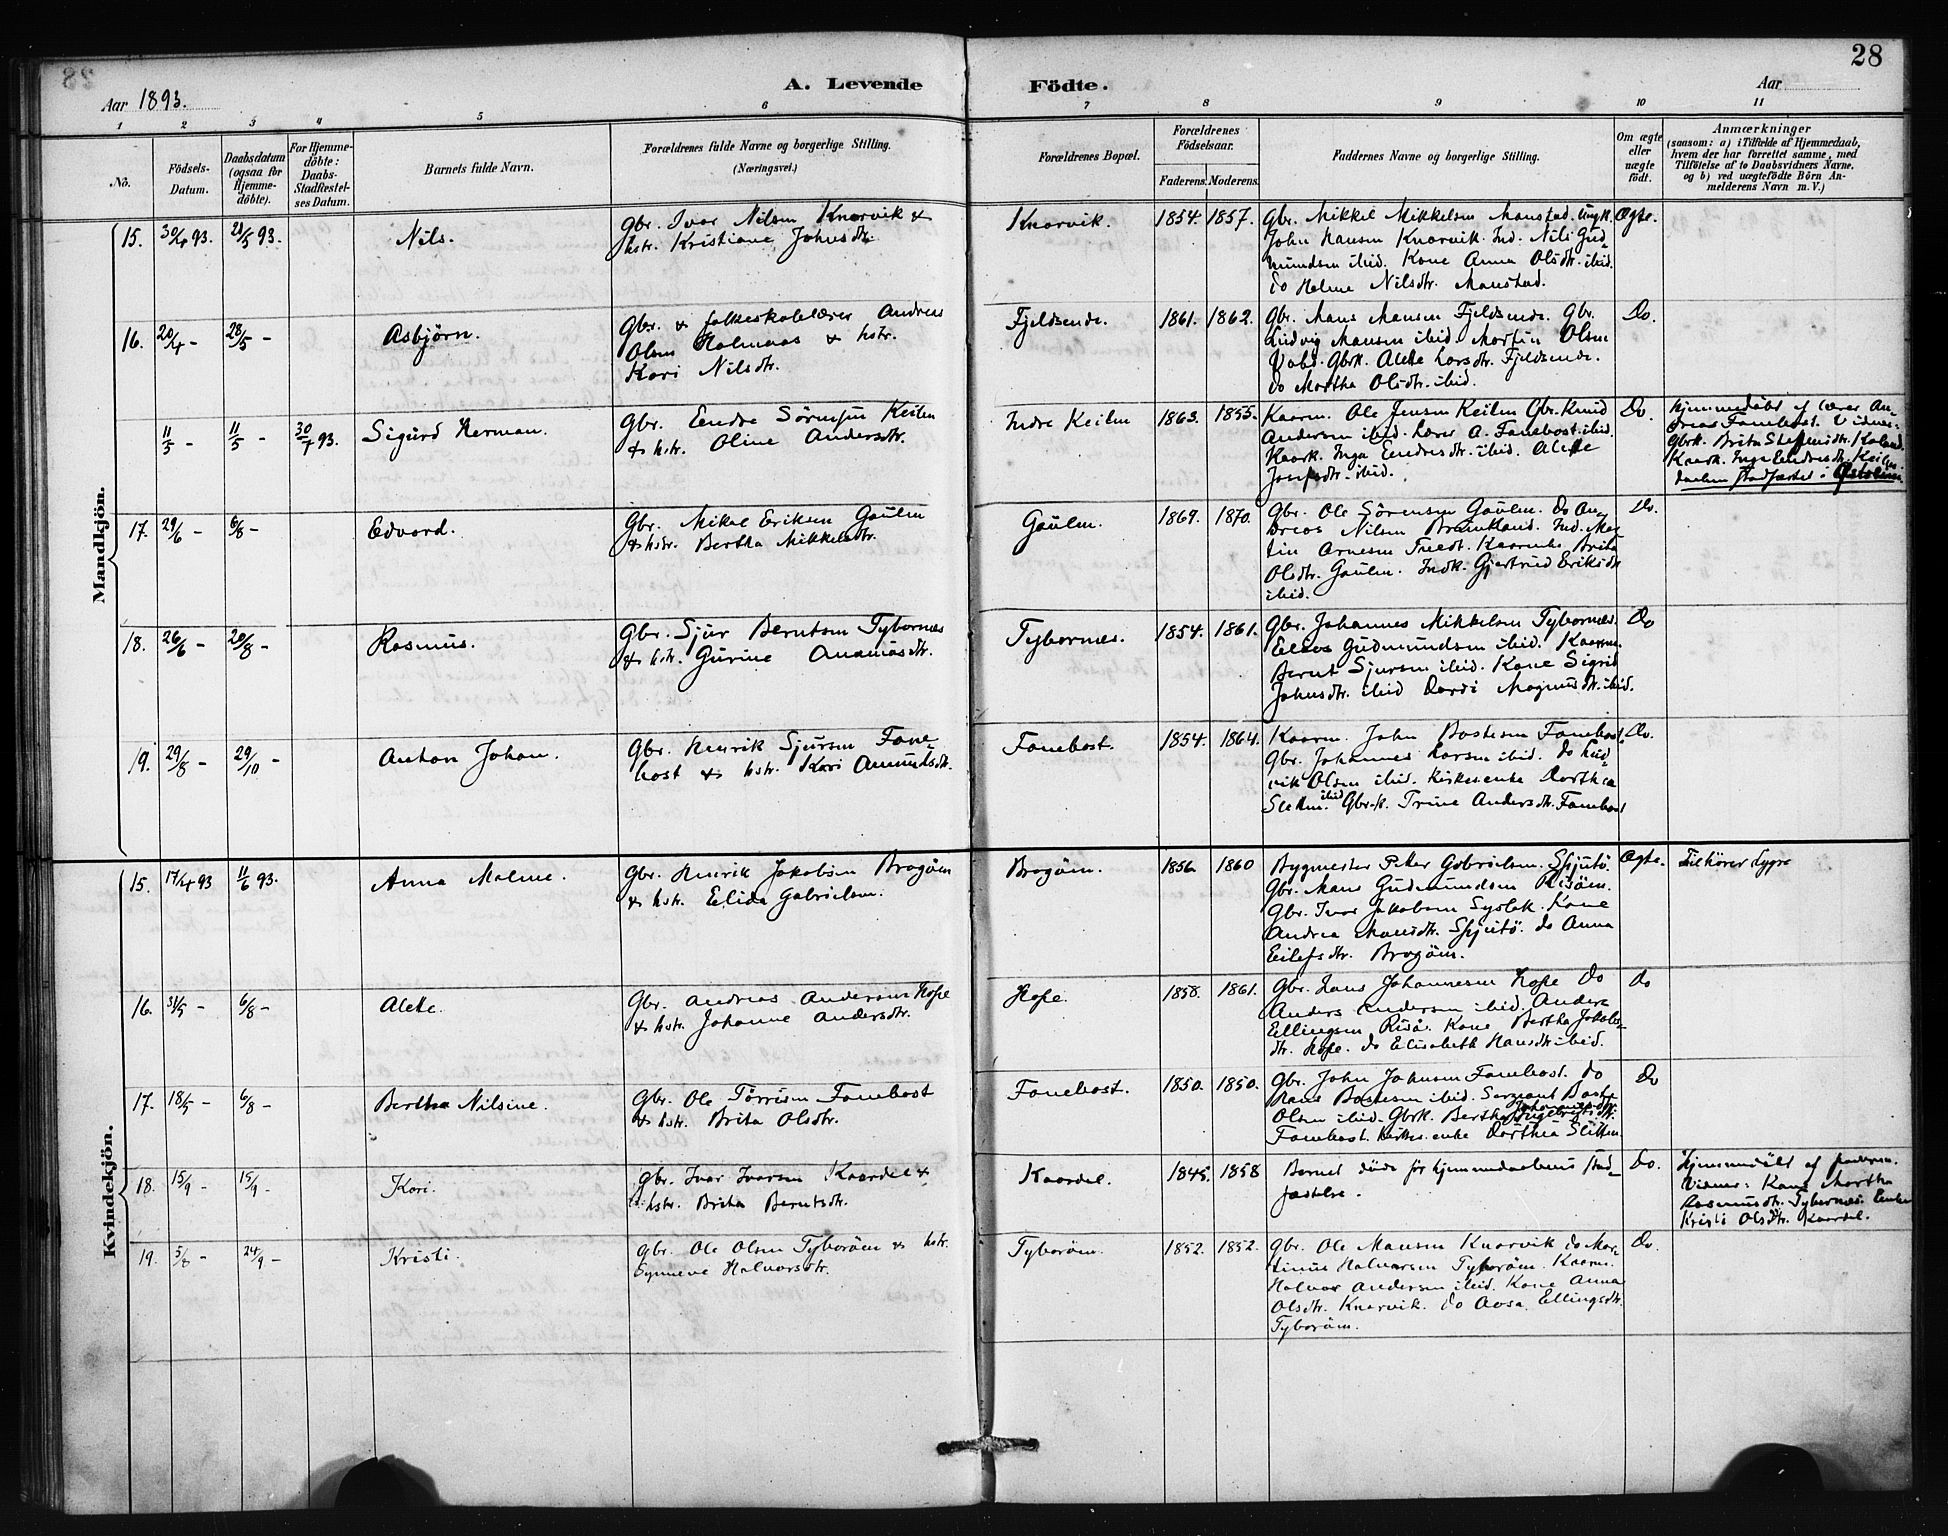 28
A. Levende Födte.
Aar 1893.
Aar
1 2 3 4 5 6 7 8 9 10 11
No.
Födsels-Datum.
Daabsdatum (ogsaa for Hjemme-döbte).
For Hjemme-döbte: Daabs-Stadfæstel-ses Datum.
Barnets fulde Navn.
Forældrenes fulde Navne og borgerlige Stilling.
(Næringsvei.)
Forældrenes Bopæl.
Forældrenes Födselsaar.
Faderens. Moderens.
Faddernes Navne og borgerlige Stilling.
Om ægte eller uægte födt.
Anmærkninger
(saasom: a) i Tilfælde af Hjemmedaab,
hvem der har forrettet samme, med
Tilföielse af to Daabsvidners Navne,
og b) ved uægtefödte Börn An-
melderens Navn m. V.)
Mandkjön.
15. 30/4 93. 21/5 93. Nils.
Gbr. Ivar Nilsen Knarvik &
hstr. Kristiane Johnsdtr.
Knarvik. 1854. 1857.
Gbr. Mikkel Mikkelsen Manstad. Ungk.
John Hansen Knarvik. Ind. Nils Gud-
mundsen ibid. Kone Anna Olsdtr. ibid.
do Helene Nilsdtr. Manstad.
Ægte.
16. 20/4 - 28/5 - Asbjörn.
Gbr. & folkeskolelærer Andreas
Olsen Halmaas & hstr.
Kari Nilsdtr.
Fjeldsende. 1861. 1862.
Gbr. Mans Mansen Fjeldsende. Gbr.
Ludvig Mansen ibid. Martin Olsen
Gbrk. Alette Larsdtr. Fjeldsende.
do Martha Olsdtr. ibid.
Do.
11/5 - 11/5 - 30/7 93. Sigurd Herman.
Gbr. Endre Sörensen Keilen
& hstr. Oline Andersdtr.
Indre Keilen 1863. 1855.
Kaarm. Ole Jensen Keilen Gbr. Knud
Andersen ibid. Lærer A. Fanebost ibid.
Kaark. Inga Endresdtr. ibid. Alette
Josefsdtr. ibid.
Do.
Hjemmedöbt af lærer An-
dreas Fanebost. Vidner:
Gbrk. Brita Steffensdtr.
Kaark. Inga Endresdtr. Keilen.
Daaben stadfæstet i
17. 29/6 - 6/8 - Edvard.
Gbr. Mikal Eriksen Gaulen
& hstr. Bertha Mikkelsdtr.
Gaulen. 1869. 1870.
Gbr. Ole Sörensen Gaulen. do An-
dreas Nilsen Ind. Mar-
tin Arnesen Kaarenke Brita
Olsdtr. Gaulen. Indk. Gjertrud Eriksdtr
ibid.
Do.
18. 26/6 - 20/8 - Rasmus.
Gbr. Sjur Berntsen Tybornæs
& hstr. Gurine Ananiasdtr.
Tybornæs. 1854. 1861.
Gbr. Johannes Mikkelsen Tybornæs.
Elias Gudmundsen ibid. Kaarm.
Bernt Sjursen ibid. Kone Sigrid
Johnsdtr. ibid Dordi Magnusdtr. ibid.
Do
19. 29/8 - 29/10 - Anton Johan.
Gbr. Henrik Sjursen Fane-
bost & hstr. Kari Amundsdtr.
Fanebost. 1854. 1864.
Kaarm. John Bastesen Fanebost.
Gbr. Johannes Larsen ibid. do Lud-
vik Olsen ibid. Kirkesenke Dorthea
Sletten. ibid Gbr.k. Trine Andersdtr. Fanebost
Do.
Kvindekjön.
15. 17/4 93 11/6 93. Anna Malene.
Gbr. Henrik Jakobsen Brogöen
& hstr. Elida Gabrielsen.
Brogöen. 1856 1860
Bygmester Peter Gabrielsen. Skjutö.
Gbr. Mans Gudmundsen Risöen.
Gbr. Ivar Jakobsen Syslak. Kone
Andrea Monsdtr. Skjutö. do Anna
Eilefsdtr. Brogöen.
Ægte.
Tilhörer Lygre
16. 31/5 - 6/8 - Alette.
Gbr. Andreas Andersen Hope
& hstr. Johanne Andersdtr.
Hope. 1858. 1861.
Gbr. Hans Johannesen Hope do
Anders Andersen ibid. Anders
Ellingsen Risö. Kone Bertha Jakobs-
dtr. Hope. do Elisabeth Hansdtr ibid.
do
17. 18/5 - 6/8 - Bertha Nilsine.
Gbr. Ole Törrisen Fanebost
& hstr. Brita Olsdtr.
Fanebost. 1850. 1850.
Gbr. John Johnsen Fanebost. do
Hans Bastesen ibid. Sergeant Baste
Olsen ibid. Gbrk. Bertha Ingebrigtsdtr.
Fanebost. Kirkes.enke Dorthea Sletten.
Do
18. 15/9 - 15/9 - Kari.
Gbr. Ivar Ivarsen Kaardal &
hstr. Brita Berntsdtr.
Kaardal. 1845. 1858
Barnet döde för hjemmedaabens stad-
fæstelse.
Do.
Hjemmedöbt af faderen.
Vidner: Kone Martha
Rasmusdtr. Tybornæs. Enke
Kristi Olsdtr. Kaardal.
19. 5/8 - 24/9 - Kristi.
Gbr. Ole Olsen Tyboröen & hstr.
Synneve Halvorsdtr.
Tyboröen. 1852. 1852.
Gbr. Ole Mansen Knarvik do Mar-
tinus Halvorsen Tyboröen. Kaarm.
Halvor Andersen ibid. Kone Anna
Olsdtr. Knarvik. do Aasa Ellingsdtr.
Tyboröen.
Do.